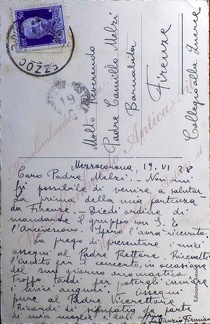 Molto Reverendo
Padre Camillo Melzi
Barnabita
Firenze
Collegio alla Querce
Mezzocorona, 19.VI.38
Caro Padre Melzi. Non mi
fu possibile di venire a salutar
La prima della mia partenza
da Firenze. Diedi ordine di
mandarle il gruppo con S. E.
l'arcivescovo. Spero l'avrà ricevuto.
La prego di presentare i miei
ossequi al Padre Rettore. Ricevetti
l'invito per il concerto, in occasione
del suo giorno onomastico.
Troppo tardi per potergli inviare
i miei auguri.
pure al Padre Vicerettore
Ricordi di da parte
mia moglie e dall'